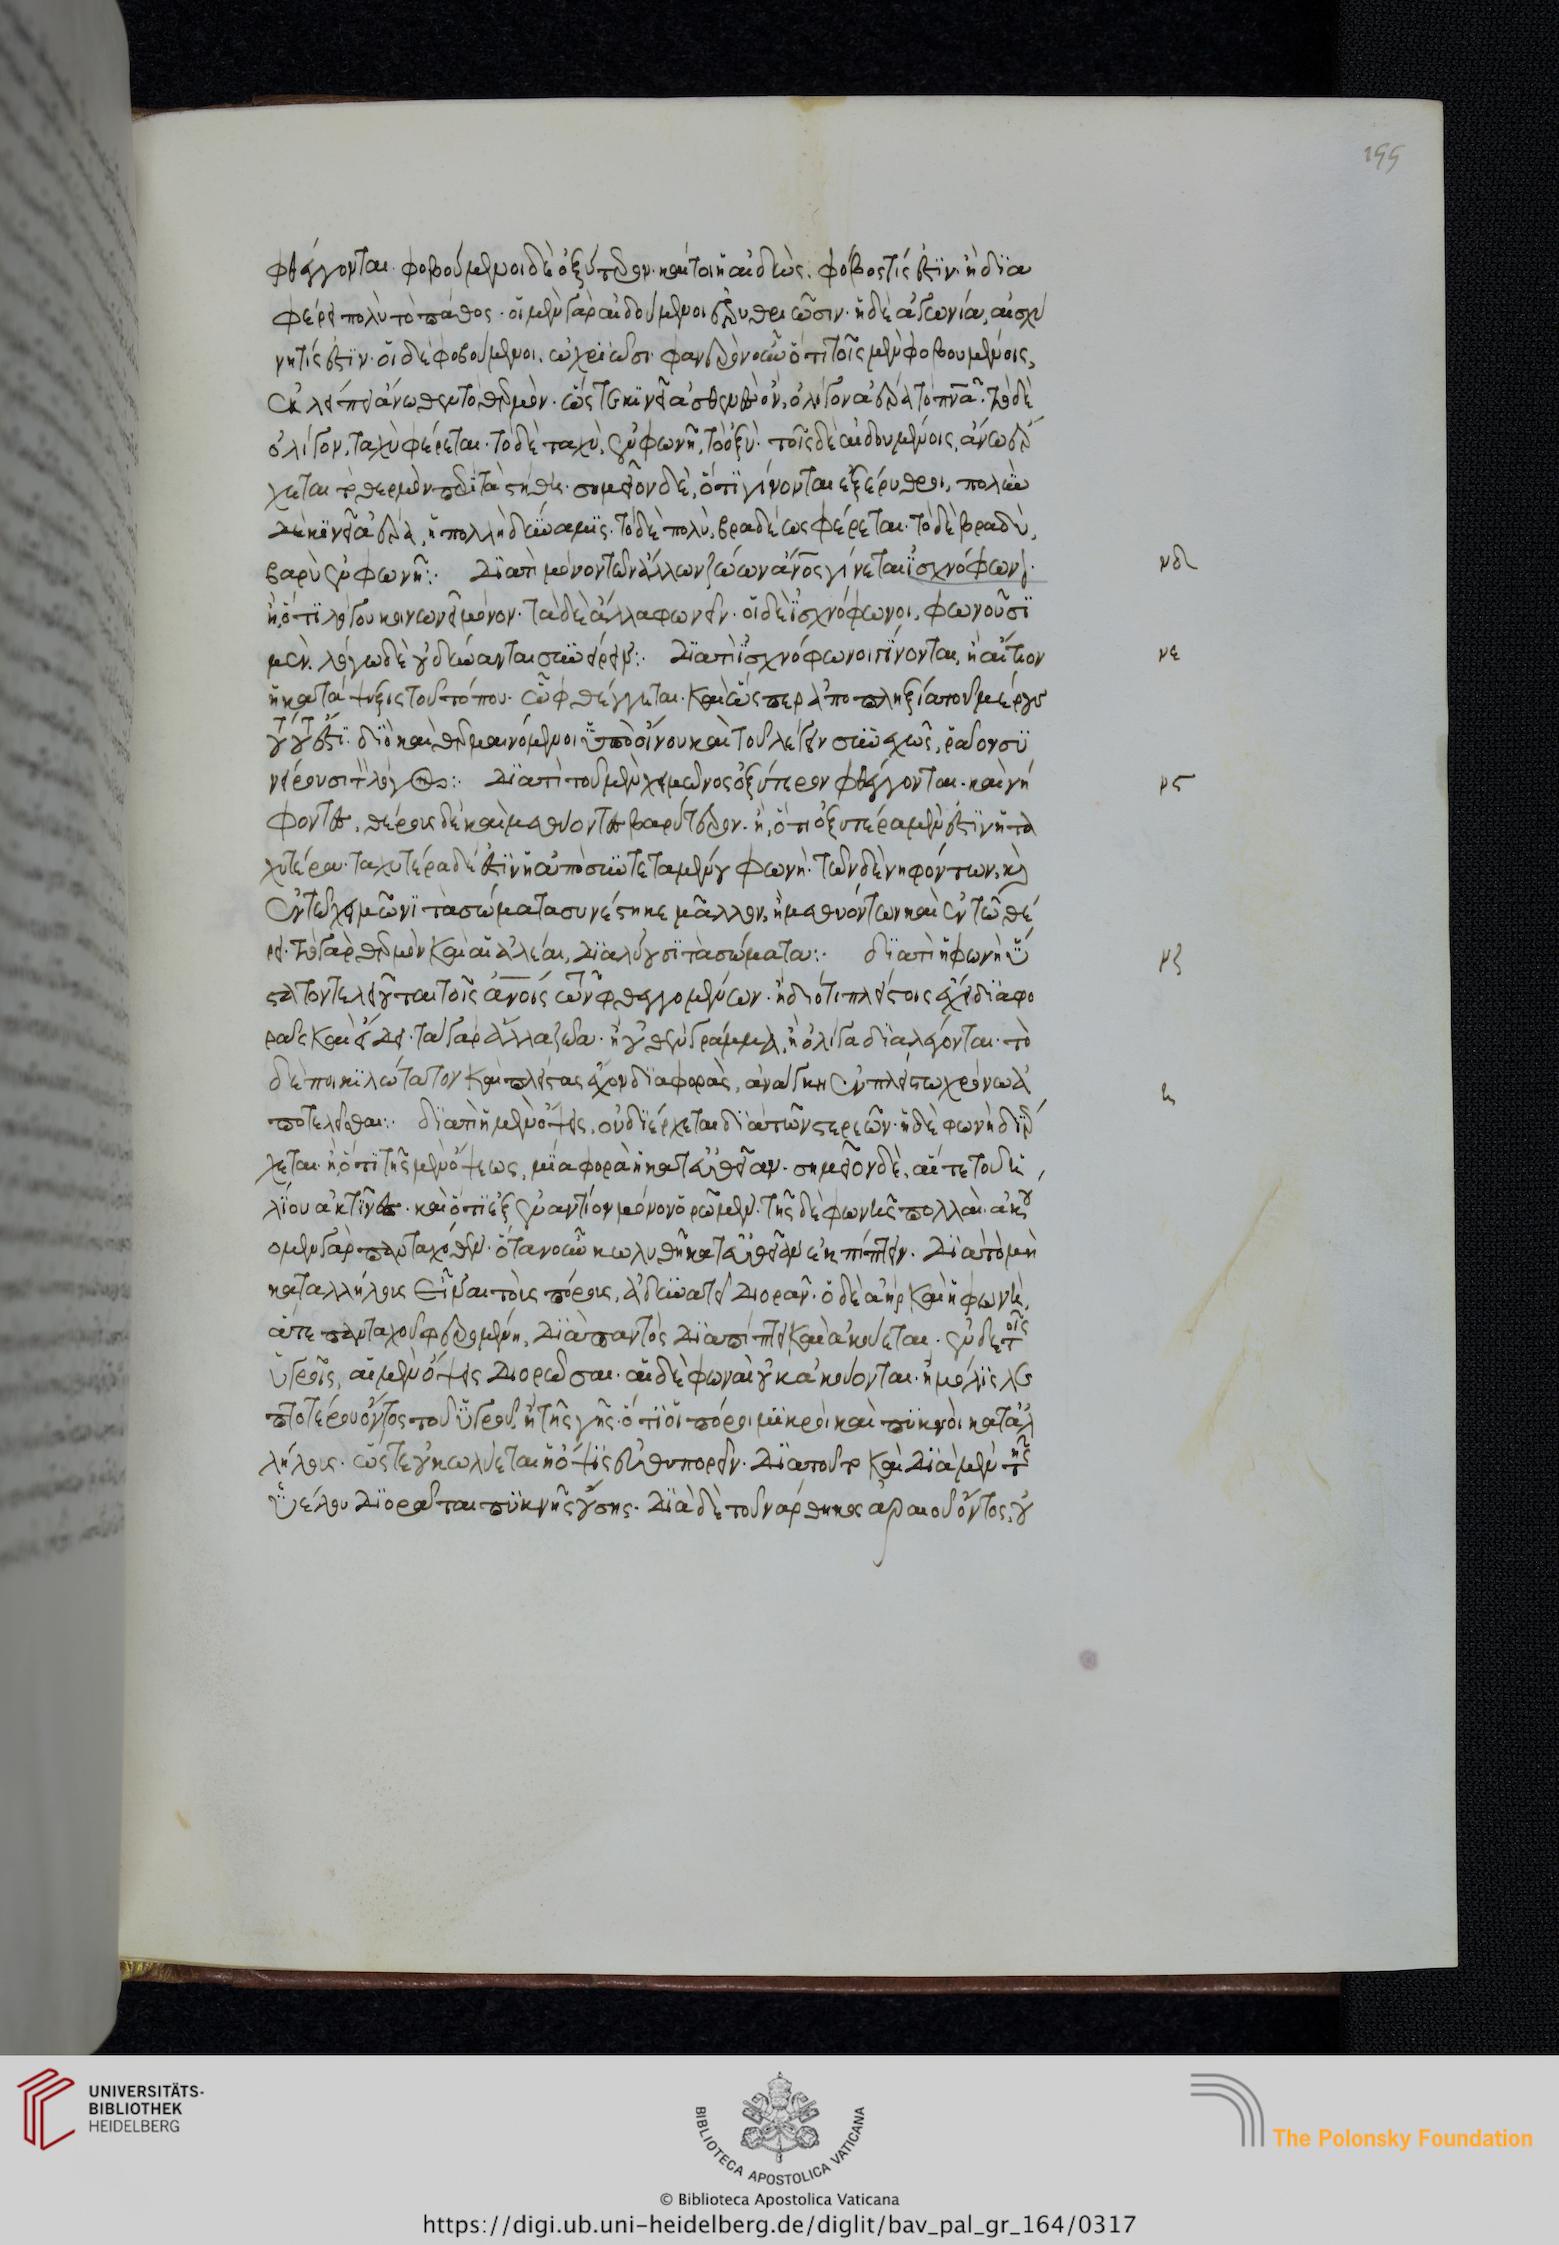 φθέγγονται· φοβούμενοι δὲ ὀξύτερον· καίτοι ἡ αἰδὼς, φόβος τίς ἐστιν· ἢ δια
φέρει πολὺ τὸ πάθος· οἱ μὲν γὰρ αἰδούμενοι ἐρυθριῶσιν· ἡ δὲ ἀγωνία, αἰσχύ
νη τίς ἐστιν· οἱ δὲ φοβούμενοι, ὠχριῶσι· φανερὸν οὖν ὅτι τοῖς μὲν φοβουμένοις,
ἐκλείπει ἄνωθεν τὸ θερμὸν· ὥστε κινεῖ ἀσθενὲς ὂν, ὀλίγον ἀέρα τὸ πνᾶ· τὸ δὲ
ὀλίγον, ταχὺ φέρεται· τὸ δὲ ταχὺ, ἐν φωνῆ, τὸ ὀξύ· τοῖς δὲ αἰδουμένοις, ἄνω ἔρ
χεται τὸ θερμὸν περὶ τὰ στήθη· σημεῖον δὲ, ὅτι γίνονται ἐξέρυθροι, πολὺν
δὲ κινεῖ ἀέρα, ἡ πολλὴ δύναμις· τὸ δὲ πολὺ, βραδέως φέρεται· τὸ δὲ βραδὺ,
βαρὺ ἐν φωνῆ:· Διατὶ μόνον τῶν ἄλλων ζώων ἄνος γίνεται ἰσχνόφων(ον)·
ἢ, ὅτι λόγου κοινωνεῖ μόνον· τὰ δὲ ἄλλα φωνεῖν· οἱ δὲ ἰσχνόφωνοι, φωνοῦσι
μὲν, λόγω δὲ οὐ δύνανται συνείρειν:· Διατὶ ἰσχνόφωνοι γίνονται, ἢ αἴτιον
ἡ κατάψυξις τοῦ τόπου· ᾧ φθέγγεται· καὶ ὥσπερ ἀποπληξία τοῦ μέρους
τοῦτό ἐστι· διὸ καὶ θερμαινόμενοι ὑπὸ οἴνου καὶ τοῦ λέγειν συνεχῶς, ῥᾶον συ
νείρουσι τὸν λόγον:· Διατὶ τοῦ μὲν χειμῶνος ὀξύτερον φθέγγονται· καὶ νή
φοντες, θέρους δὲ καὶ μεθύοντες βαρύτερον· ἢ, ὅτι ὀξυτέρα μὲν ἐστὶν ἡ τα
χυτέρα· ταχυτέρα δέ ἐστιν ἡ ἀπὸ συντεταμένου φωνὴ· τῶν δὲ νηφόντων, καὶ
ἐν τῶ χειμῶνι τὰ σώματα συνέστηκε μᾶλλον, ἢ μεθυόντων καὶ ἐν τῶ θέ
ρει· τὸ γὰρ θερμὸν καὶ αἱ ἀλέαι, διαλύουσι τὰ σώματα:· διατὶ ἡ φωνὴ ὕ
στατον τελειοῦται τοῖς ἀνοις τῶν φθεγγομένων· ἢ διότι πλείστοις ἔχει διαφο
ρὰς καὶ εἴδει· τὰ γὰρ ἄλλα ζῶα· ἢ οὐθὲν γράμμα, ἢ ὀλίγα διαλέγονται· τὸ
δὲ ποικιλώτατον καὶ πλείστας ἔχον διαφορὰς, ἀνάγκη ἐν πλείστω χρόνω ἀ
ποτελεῖσθαι:· διατὶ ἡ μὲν ὄψις, οὐ διέρχεται διὰ τῶν στερεῶν· ἡ δὲ φωνὴ διέρ
χεται· ἢ ὅτι τῆς μὲν ὄψεως, μία φορὰ ἡ κατ' εὐθεῖαν· σημεῖον δὲ, αἵ τε τοῦ ἡ
λίου ἀκτῖνες· καὶ ὅτι ἐξ ἐναντίου μόνον ὁρῶμεν· τῆς δὲ φωνῆς πολλαὶ· ἀκού
ομεν γὰρ πανταχόθεν· ὅταν οὖν κωλυθῆ κατ' εὐθεῖαν ἐκπίπτειν· διὰ τὸ μὴ
καταλλήλους εἶναι τοὺς πόρους, ἀδυνατεῖ διορᾶν· ὁ δὲ ἀὴρ καὶ ἡ φωνὴ,
ἅτε πανταχοῦ φερομένη, διὰ παντὸς διαπίπτει καὶ ἀκούεται· ἐν δὲ τοῖς
ὑγροῖς, αἱ μὲν ὄψεις διορῶσαι· αἱ δὲ φωναὶ οὐκ ἀκούονται· ἢ μόλις λε
πτοτέρου ὄντος τοῦ ὑγροῦ, ἢ τῆς γῆς· ὅτι οἱ πόροι μικροὶ καὶ πυκνοὶ κατάλ
ληλοις· ὥστε οὐ κωλύεται ἡ ὄψις εὐθυπορεῖν· διὰ τοῦτο καὶ διὰ μὲν τῆς
ὑέλου διορᾶται πυκνῆς οὔσης· διὰ δὲ τοῦ νάρθηκος ἀραιοῦ ὄντος, οὐ
νδ
νε
νς
νζ
199
UNIVERSITÄTS-
BIBLIOTHEK
HEIDELBERG
BIBLIOTECA APOSTOLICA VATICANA
The Polonsky Foundation
© Biblioteca Apostolica Vaticana
https://digi.ub.uni-heidelberg.de/diglit/bav_pal_gr_164/0317